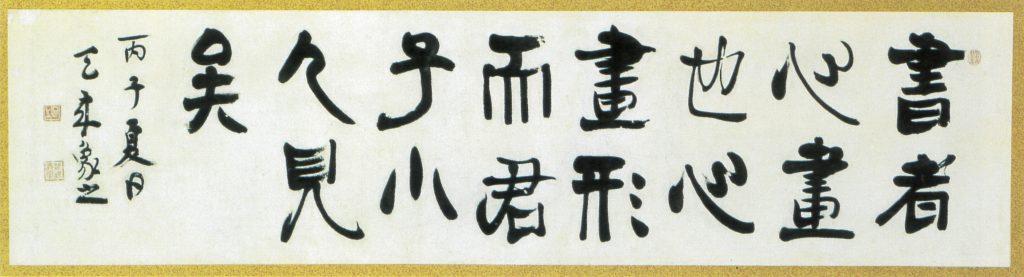 書者
心畫
也心
畫形
而君
子小
人見
矣
丙子夏日